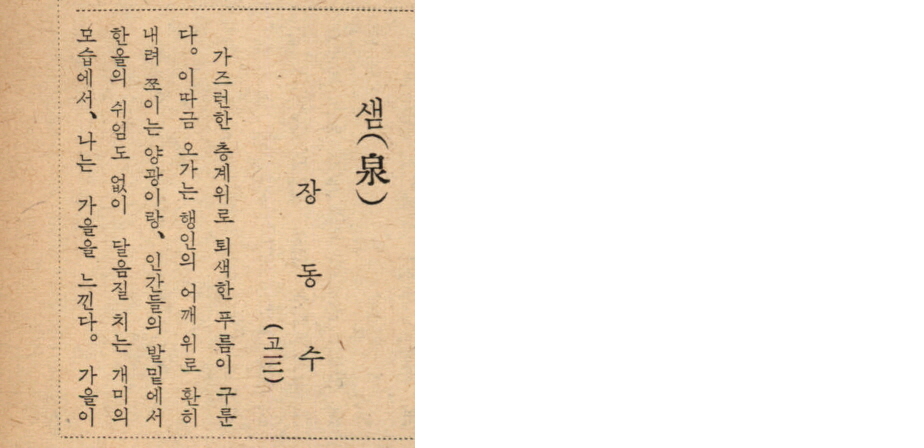 샘(泉)
장동수
(고三)
가즈런한 층계위로 퇴색한 푸름이 구룬
다。이따금 오가는 행인의 어깨 위로 환히
내려 쪼이는 양광이랑、인간들의 발밑에서
한올의 쉬임도 없이 달음질 치는 개미의
모습에서、나는 가을을 느낀다。가을이